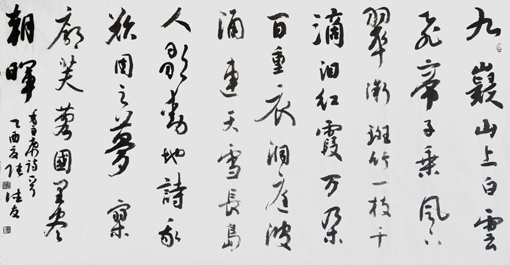 九嶷山上白雲
飛帝子乘風下
翠微斑竹一枝千
滴泪紅霞万朵
百重衣洞庭波
涌連天雪長島
人歌動地詩我
欲因之夢寥
廓芙蓉國里尽
朝暉
乙酉